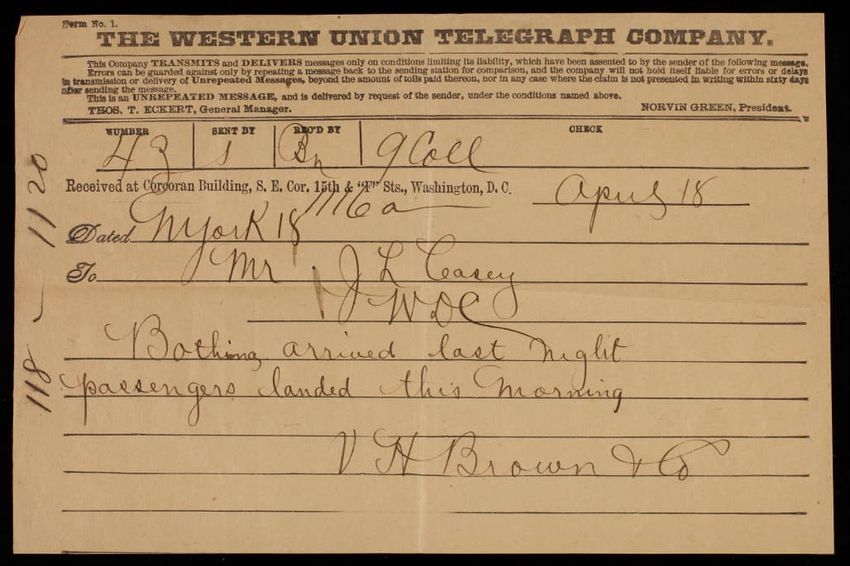 Form No. 1.
THE WESTERN UNION TELEGRAPH COMPANY.
This Company TRANSMITS and DELIVERS messages only on conditions limiting its liability, which have been assented to by the sender of the following message.
Errors can be guarded against only by repeating a message back to the sending station for comparison, and the company will not hold itself liable for errors or delays
in transmission or delivery of Unrepeated Messages, beyond the amount of tolls paid thereon, nor in any case where the claim is not presented in writing within sixty days
after sending the message.
This is an UNREPEATED MESSAGE, and is delivered by request of the sender, under the conditions named above.
THOS. T. ECKERT, General Manager. NORVIN GREEN, President.
NUMBER SENT BY REC'D BY CHECK
43 S Bn 9 Coll
Received at Corcoran Building, S. E. Cor. 15th & "F" Sts., Washington, D. C. April 18
1116 a
Dated N York 18
To Mr J L Casey
WDC
Bothing arrived last night
passengers landed this morning
V H Brown & Co
118 — 1120